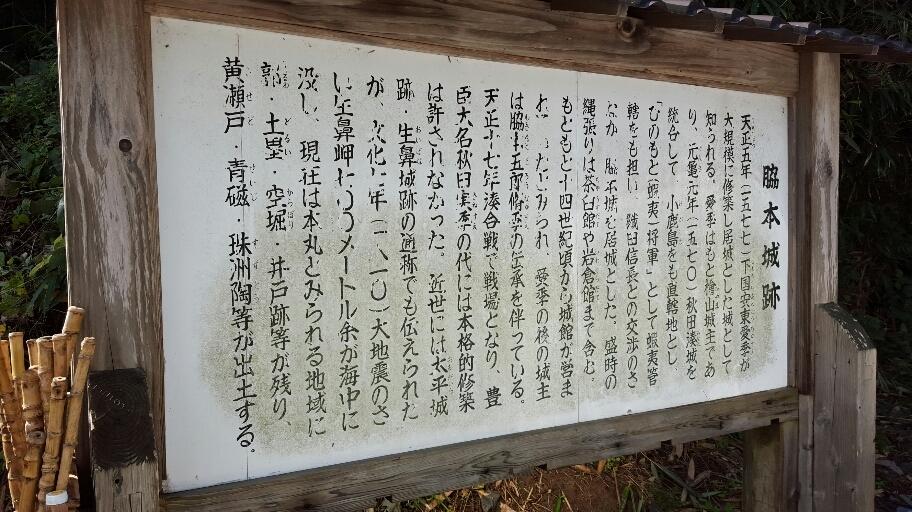 脇本城跡
天正五年(一五七七)下国安東愛季が
大規模に修築し居城とした城として
知られる。愛季はもと檜山城主であ
り、元亀元年(一五七〇)秋田湊城を
統合して、小鹿島をも直轄地とし
「ひのもと蝦夷将軍」として蝦夷管
轄をも担い、織田信長との交渉のさ
なか、脇本城を居城とした。盛時の
縄張りは茶臼館や岩倉館まで含む。
もともと十四世紀頃から城館が営ま
れ たとみられ 愛季の後の城主
は脇本五郎脩季の伝承を伴っている。
天正十七年湊合戦で戦場となり、豊
臣大名秋田実季の代には本格的修築
は許されなかった。近世には太平城
跡・生鼻城跡の通称でも伝えられた
が、文化七年(一八一〇)大地震のさ
いに生鼻岬 メートル余が海中に
没し、現在は本丸とみられる地域に
郭・土塁・空堀・井戸跡等が残り、
黄瀬戸・青磁・珠洲陶等が出土する。